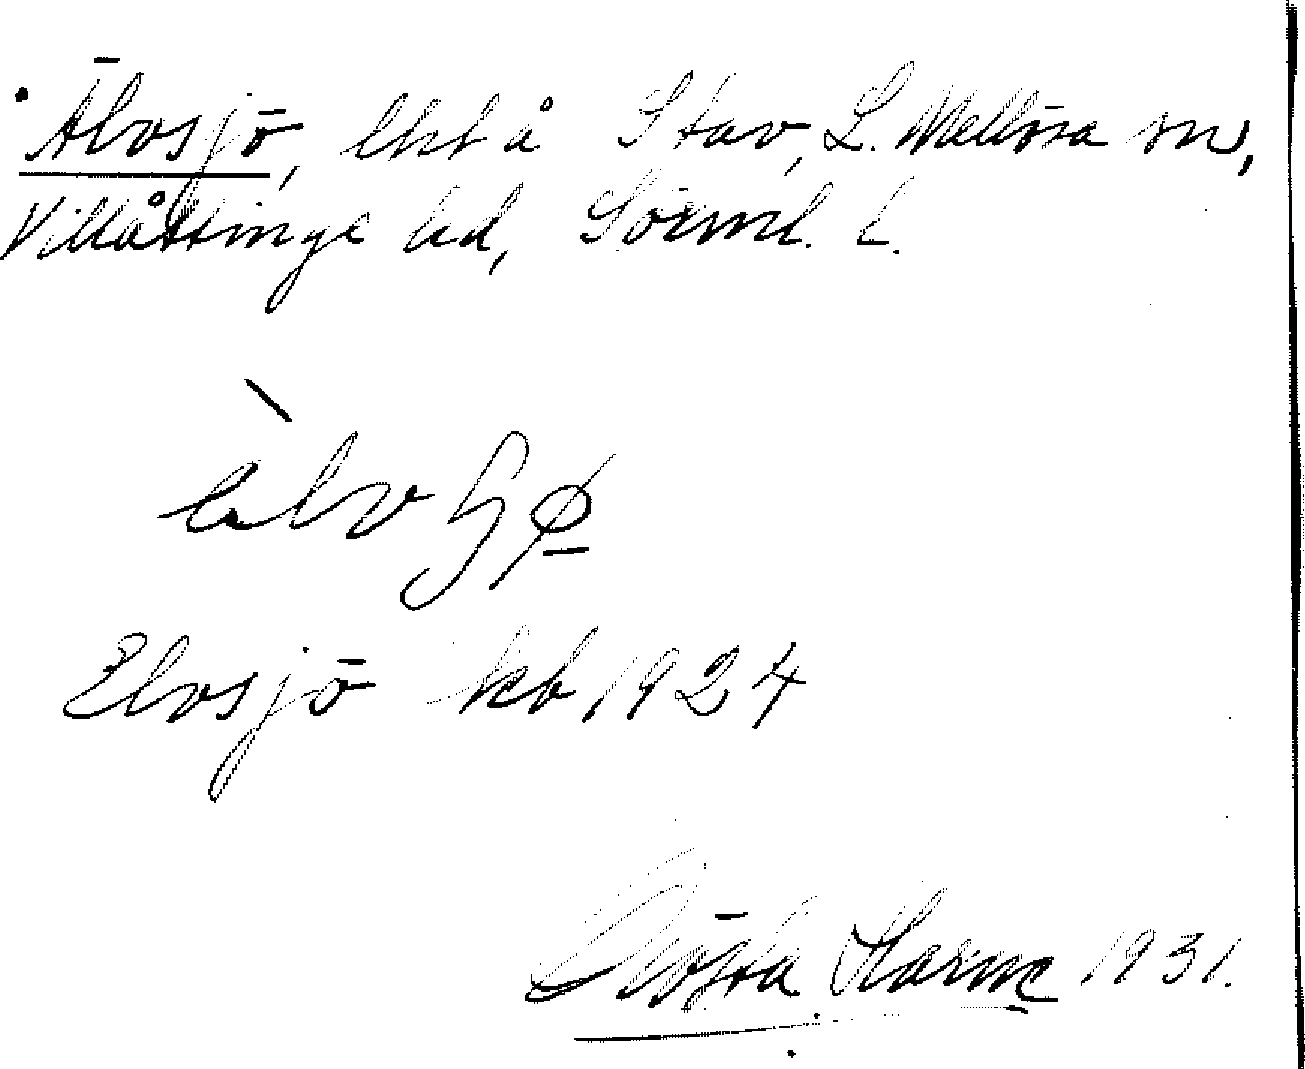 Älvsjö, lht å Stav, L. Mellösa sn,
Villåttinge hd, Sörml. l.
Elvsjö kb 1924
Gösta Harme 1931.